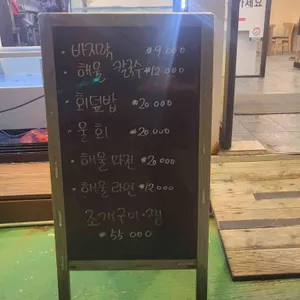 가세요
· 바지락 ₩9.000
· 해물 칼국수 ₩12.000
· 회덮밥 ₩20.000
· 물회 ₩20.000
· 해물파전 ₩20.000
· 해물라면 ₩12.000
조개구이·찜
₩55.000